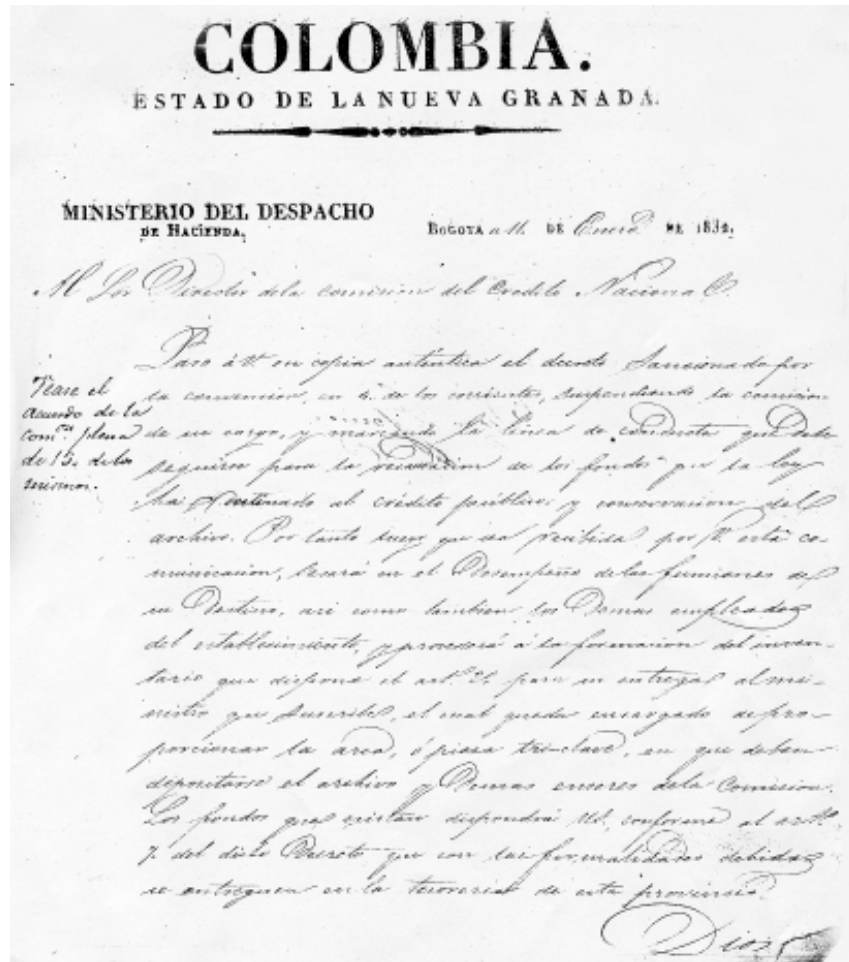 COLOMBIA.
ESTADO DE LA NUEVA GRANADA.
MINISTERIO DEL DESPACHO
DE HACIENDA.
BOGOTA a 11. DE Enero DE 1832.
Al Sor Director de la comision del Credito Nacional.
Paso á V. en copia autentica el decreto Sancionado por
la convencion, en 4. de los corrientes, suspendiendo la comision
de su cargo, y marcando la linea de conducta que debe
seguirse para la recaudacion de los fondos que la ley
ha destinado al crédito público y conservacion del
archivo. Por tanto luego que sea recibida por V. esta co-
municacion, cesará en el Desempeño de las funciones de
su Destino, asi como tambien los Demas empleados
del establecimiento, y procederá á la formacion del inven-
tario que dispone el artº para su entrega al mi-
nistro que Suscribe, el cual queda encargado de pro-
porcionar la arca, ó pieza tri-clave, en que deban
depositarse el archivo y Demas enseres de la Comision.
Los fondos que existan dispondrá Ud. conforme al artº.
7. del dicho Decreto, que con las formalidades debidas
se entreguen en la tesoreria de esta provincia.
Dios
Vease el
acuerdo de la
comon. plena
de 13. de los
mismos.